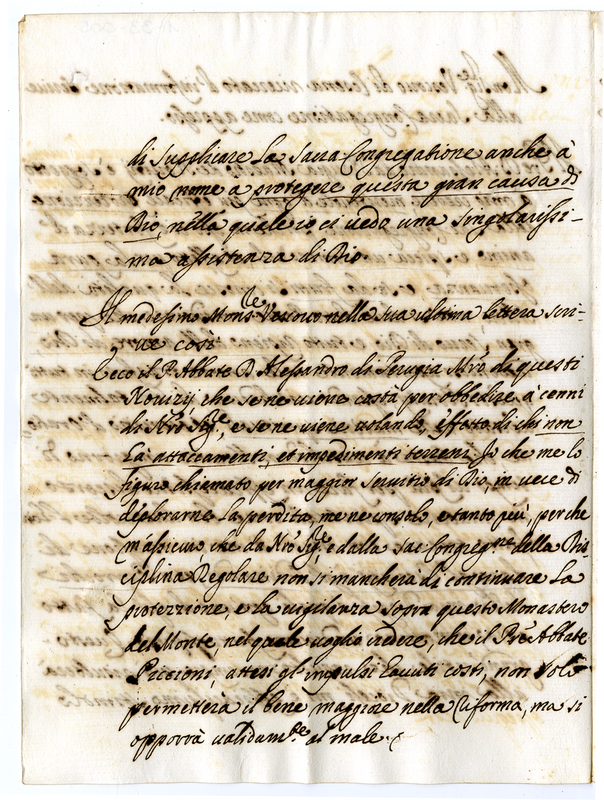 di supplicare la sacra Congregatione anche à
mio nome a protegere questa gran causa di
Dio, nella quale io ci vedo una singolarissi-
ma assistenza di Dio.
Il medesimo Mons.re Vescovo nella sua ultima lettera scri-
ve così
Ecco il P. Abbate D. Alessandro di Perugia Mro di questi
Novizij che se ne viene costà per obbedire à cenni
di Nro Sig.re, e se ne viene volando, effetto di chi non
hà attaccamenti, et impedimenti terreni. Io che me lo
figuro chiamato per maggior servitio di Dio, in vece di
deplorarne la perdita, me ne consolo, e tanto più, perche
m'assicuro, che da Nro Sig.re, e dalla sac Congreg.ne della Dis-
ciplina Regolare non si mancherà di continuare la
protezzione, e la vigilanza sopra questo Monastero
del Monte, nel quale voglio credere, che il Pre Abbate
Piccioni, attesi gl'impulsi havuti costì, non solo
permetterà il bene maggiore nella Riforma, ma si
opporrà validam.te al male.